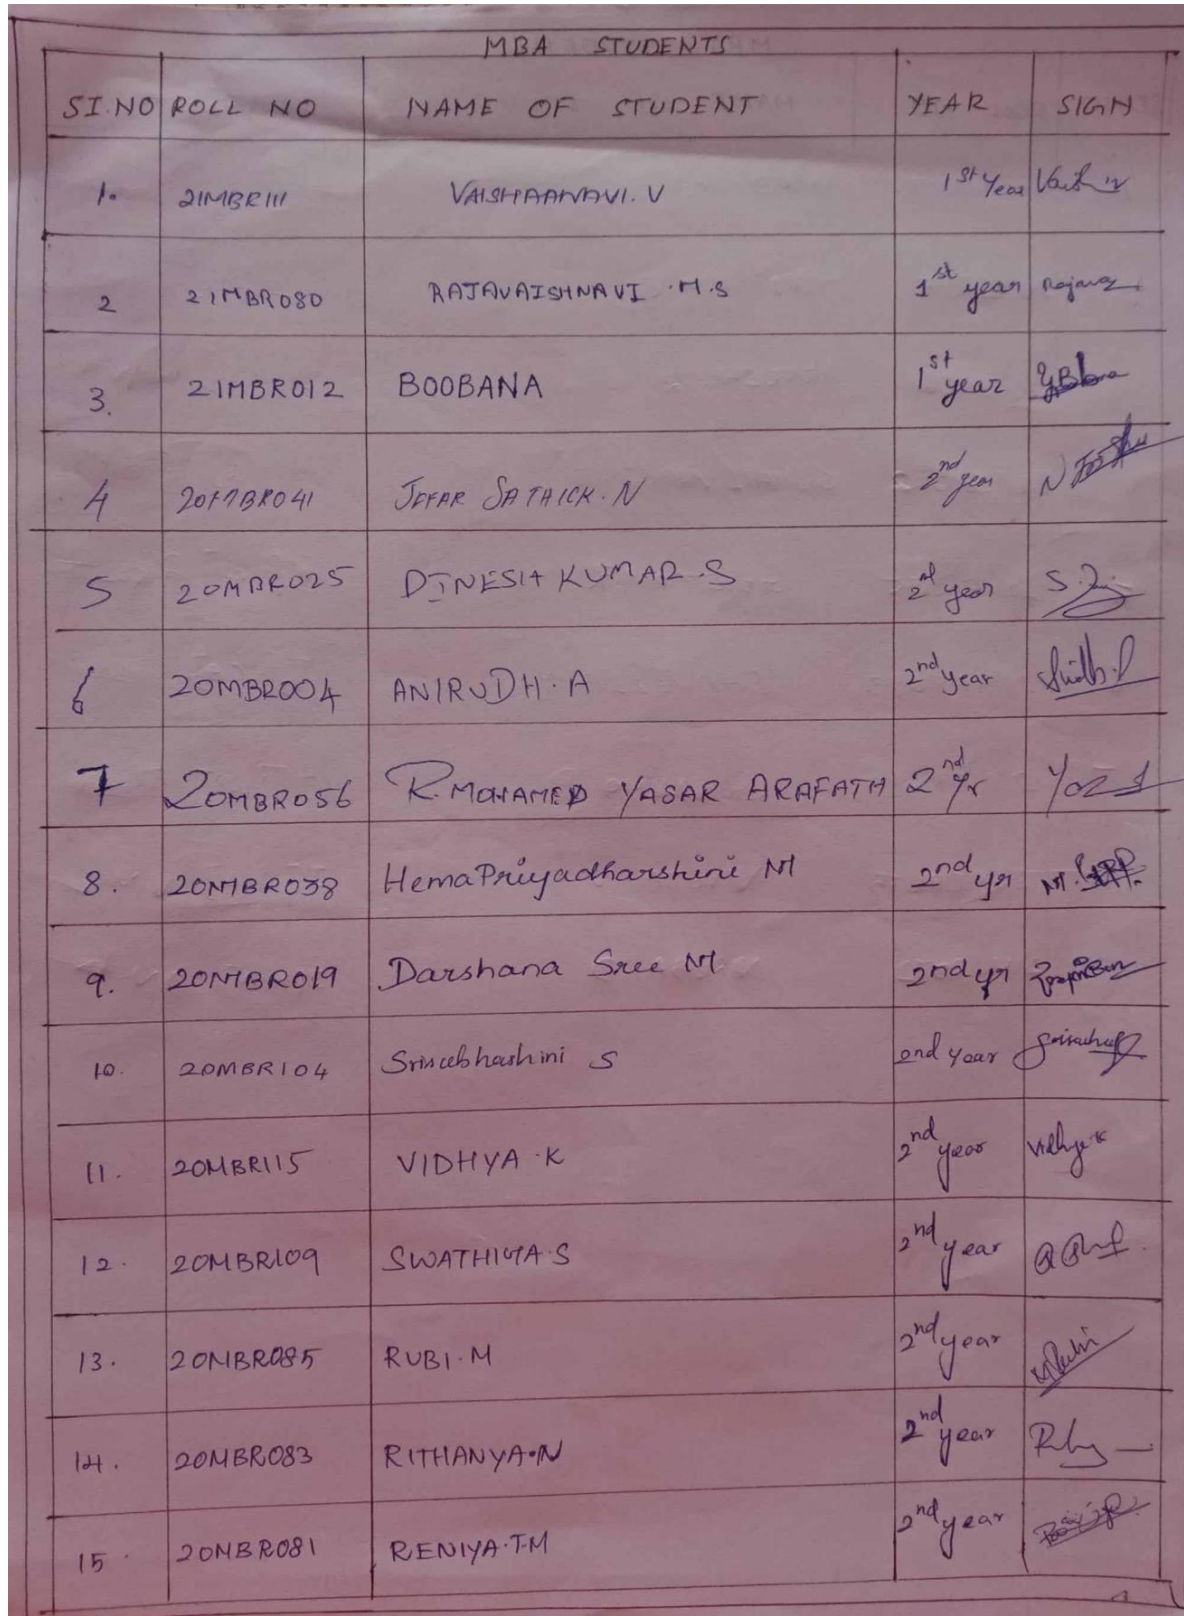 MBA STUDENTS
SI.NO ROLL NO NAME OF STUDENT YEAR SIGN
1. 21MBR111 VAISHAANAVI.V 1st Year
2 21MBR080 RAJAVAISHNAVI .M.S 1st year
3. 21MBR012 BOOBANA 1st year
4 20MBR041 JEFAR SATHICK.N 2nd year
5 20MBR025 DINESH KUMAR.S 2nd year
6 20MBR004 ANIRUDH.A 2nd year
7 20MBR056 R.MOHAMED YASAR ARAFATH 2nd Yr
8. 20MBR038 HemaPriyadharshini M 2nd yr
9. 20MBR019 Darshana Sree M 2nd yr
10. 20MBR104 Srisubhashini S 2nd year
11. 20MBR115 VIDHYA.K 2nd year Vidhya.K
12. 20MBR109 SWATHIYA.S 2nd year
13. 20MBR085 RUBI.M 2nd year
14. 20MBR083 RITHANYA.N 2nd year
15 20MBR081 RENIYA.T.M 2nd year